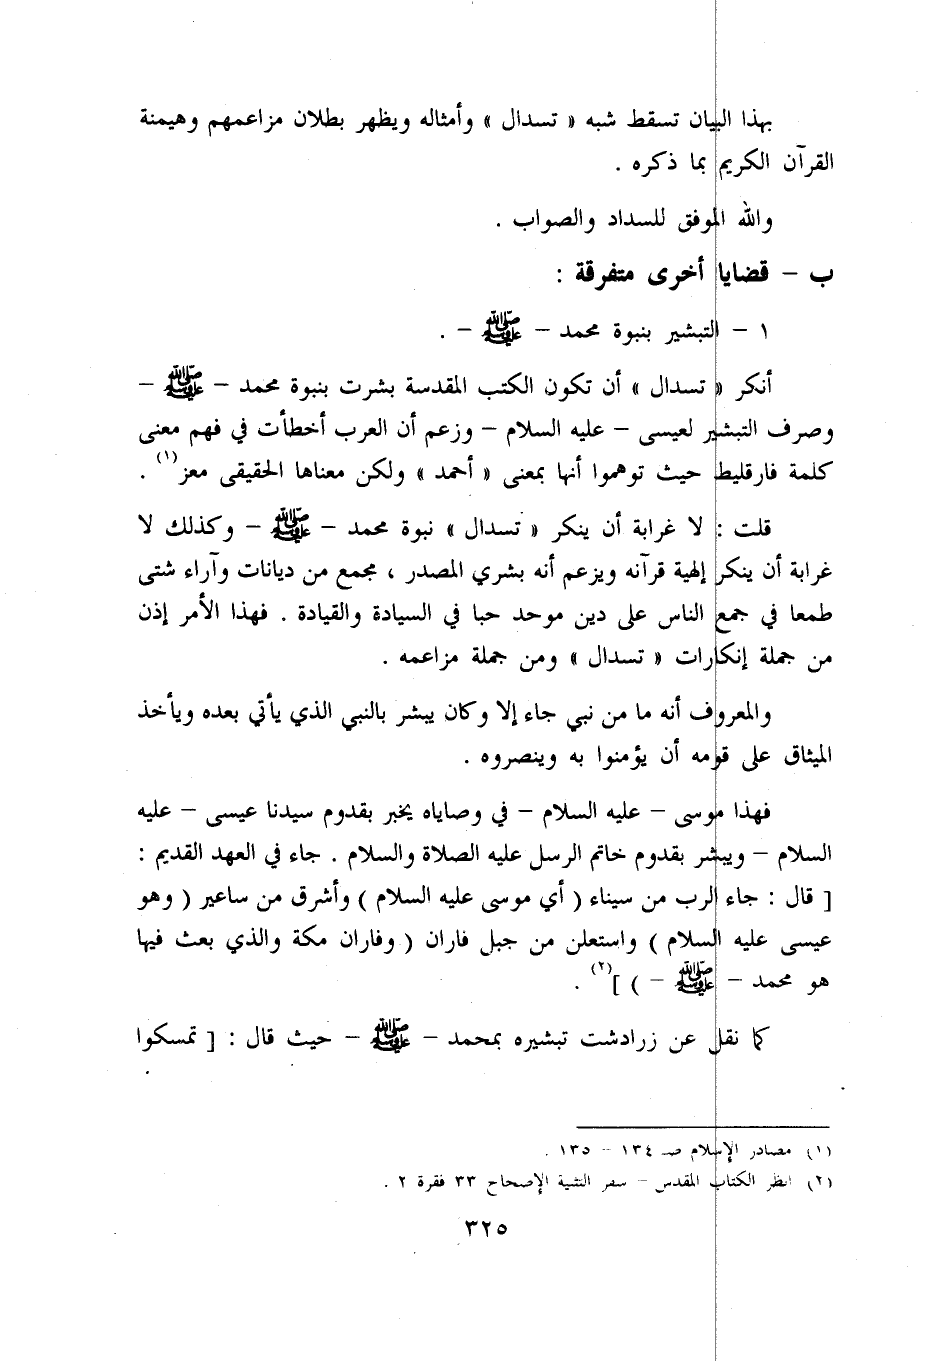 بهذا البيان تسقط شبه « تسدال » وأمثاله ويظهر بطلان مزاعمهم وهيمنة
القرآن الكريم بما ذكره .
والله الموفق للسداد والصواب .
ب – قضايا أخرى متفرقة :
١ – التبشير بنبوة محمد – ﷺ – .
أنكر « تسدال » أن تكون الكتب المقدسة بشرت بنبوة محمد – ﷺ –
وصرف التبشير لعيسى – عليه السلام – وزعم أن العرب أخطأت في فهم معنى
كلمة فارقليط حيث توهموا أنها بمعنى « أحمد » ولكن معناها الحقيقى معز(١) .
قلت : لا غرابة أن ينكر « تسدال » نبوة محمد – ﷺ – وكذلك لا
غرابة أن ينكر إلهية قرآنه ويزعم أنه بشري المصدر ، مجمع من ديانات وآراء شتى
طمعا في جمع الناس على دين موحد حبا في السيادة والقيادة . فهذا الأمر إذن
من جملة إنكارات « تسدال » ومن جملة مزاعمه .
والمعروف أنه ما من نبي جاء إلا وكان يبشر بالنبي الذي يأتي بعده ويأخذ
الميثاق على قومه أن يؤمنوا به وينصروه .
فهذا موسى – عليه السلام – في وصاياه يخبر بقدوم سيدنا عيسى – عليه
السلام – ويبشر بقدوم خاتم الرسل عليه الصلاة والسلام . جاء في العهد القديم :
[ قال : جاء الرب من سيناء ( أي موسى عليه السلام ) وأشرق من ساعير ( وهو
عيسى عليه السلام ) واستعلن من جبل فاران ( وفاران مكة والذي بعث فيها
هو محمد – ﷺ – ) ](٢) .
كما نقل عن زرادشت تبشيره بمحمد – ﷺ – حيث قال : [ تمسكوا
(١) مصادر الإسلام صـ ١٣٤ – ١٣٥ .
(٢) انظر الكتاب المقدس – سفر التثنية الإصحاح ٣٣ فقرة ٢ .
٣٢٥